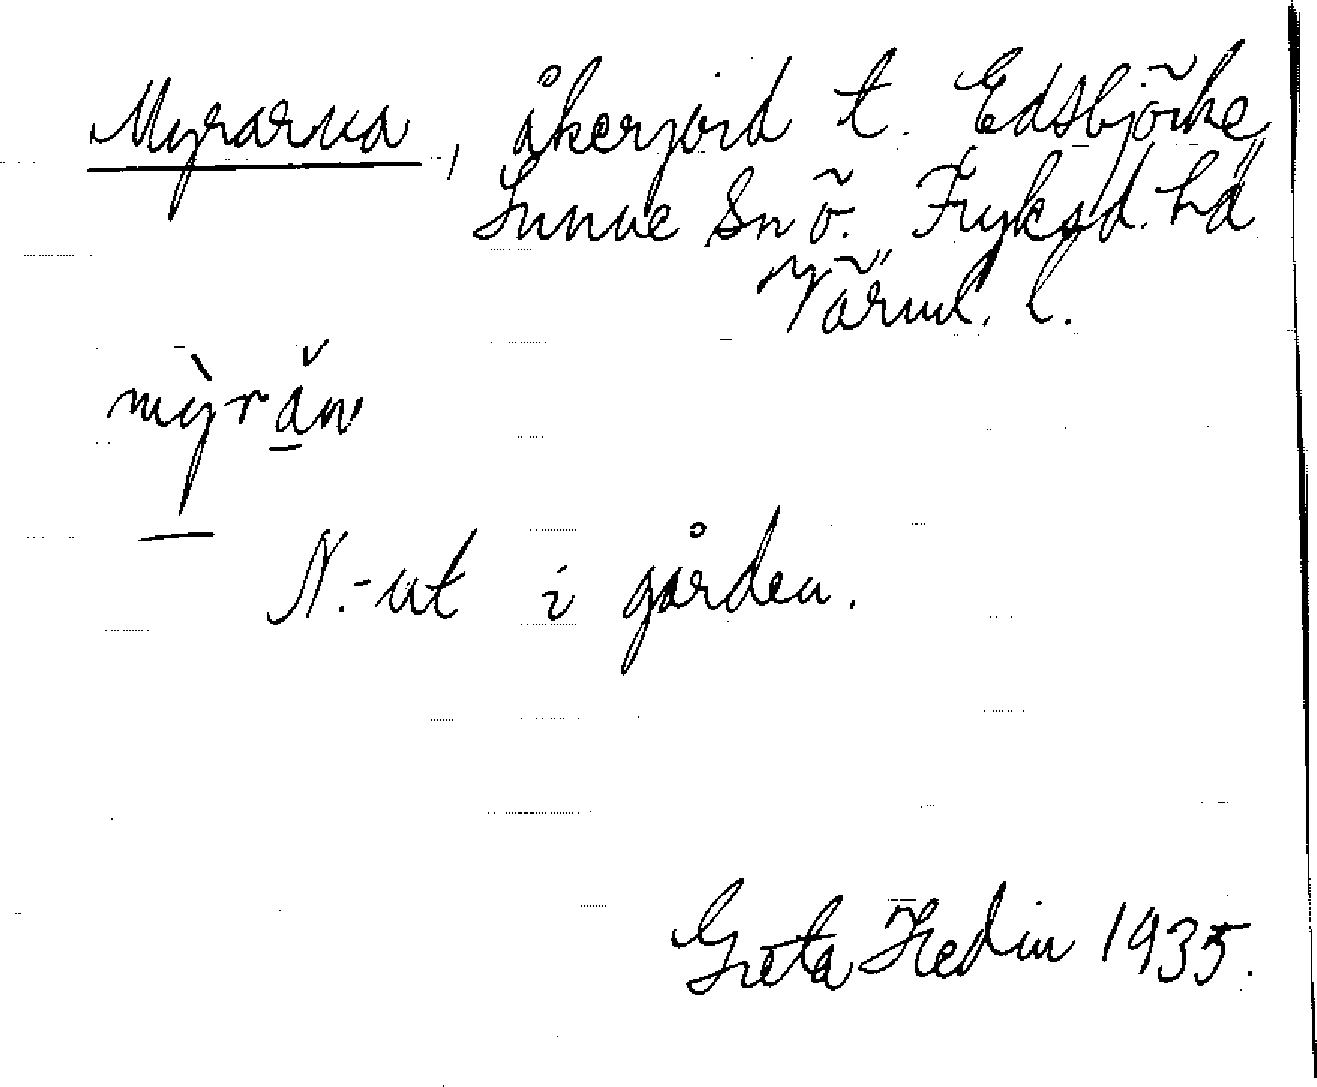 Myrarna, åkerjord t. Edsbjörke
Sunne Sn Ö. Fryksd. hd
Värml. l.
mỳrǎn
N.-ut i gården.
Greta Hedin 1935.